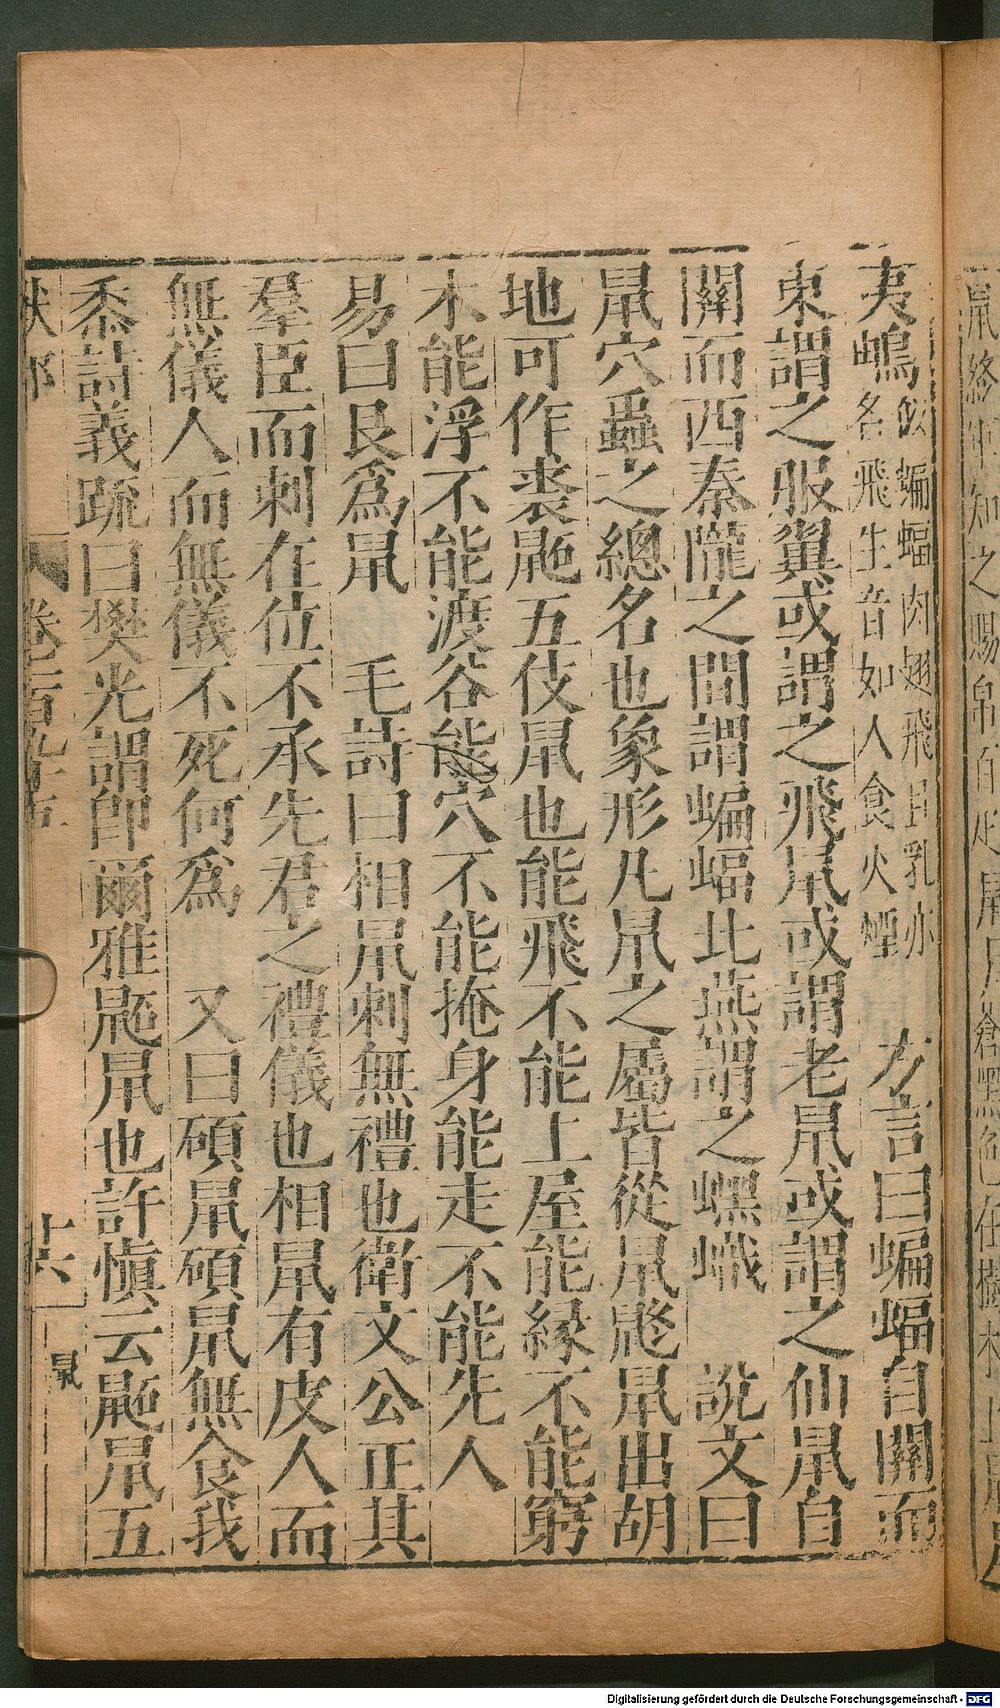 夷鳴似蝙蝠肉翅飛且乳亦
名飛生音如人食火煙　方言曰蝙蝠自關而
東謂之服翼或謂之飛鼠或謂老鼠或謂之仙鼠自
關而西秦隴之間謂蝙蝠北燕謂之蟙䘃　說文曰
鼠穴蟲之總名也象形凡鼠之屬皆從鼠鼨鼠出胡
地可作裘鼫五伎鼠也能飛不能上屋能緣不能窮
木能浮不能渡谷能穴不能掩身能走不能先人
易曰艮爲鼠　毛詩曰相鼠刺無禮也衛文公正其
羣臣而刺在位不承先君之禮儀也相鼠有皮人而
無儀人而無儀不死何爲　又曰碩鼠碩鼠無食我
黍詩義疏曰樊光謂卽爾雅鼫鼠也許愼云鼫鼠五
獸部　卷二百九十五　十六　鼠
Digitalisierung gefördert durch die Deutsche Forschungsgemeinschaft - DFG